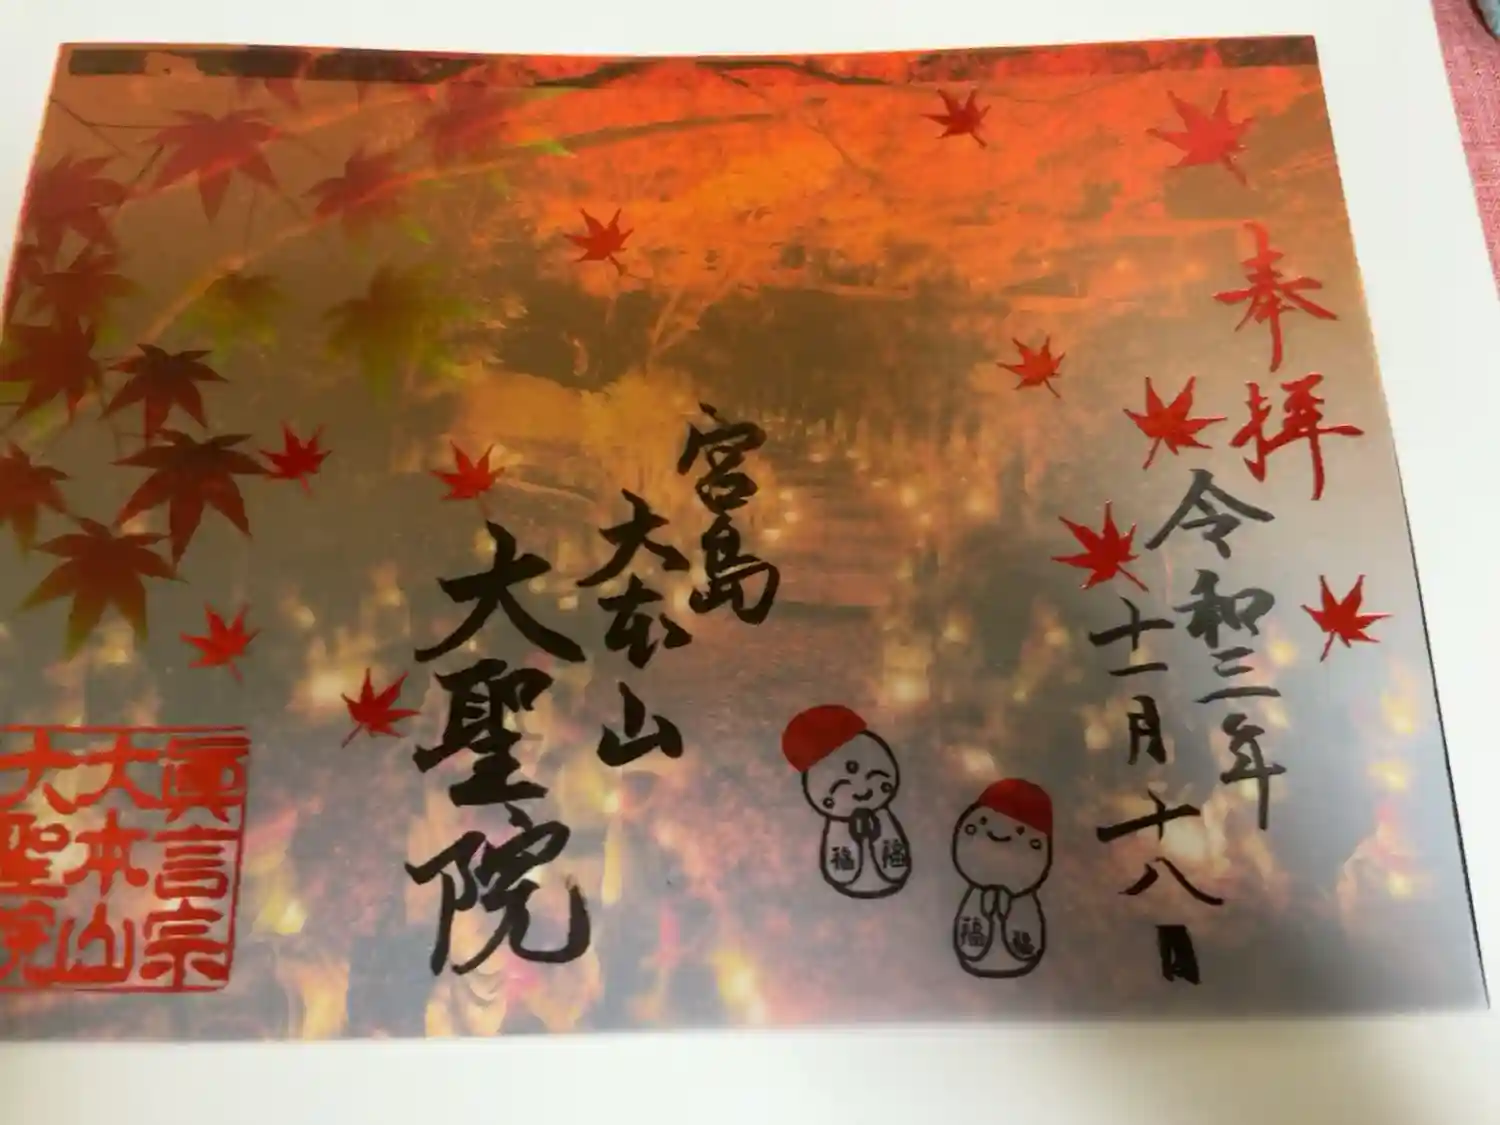 奉拝
令和三年
十一月十八日
宮島
大本山
大聖院
福
福
福
福
眞言宗
大本山
大聖院